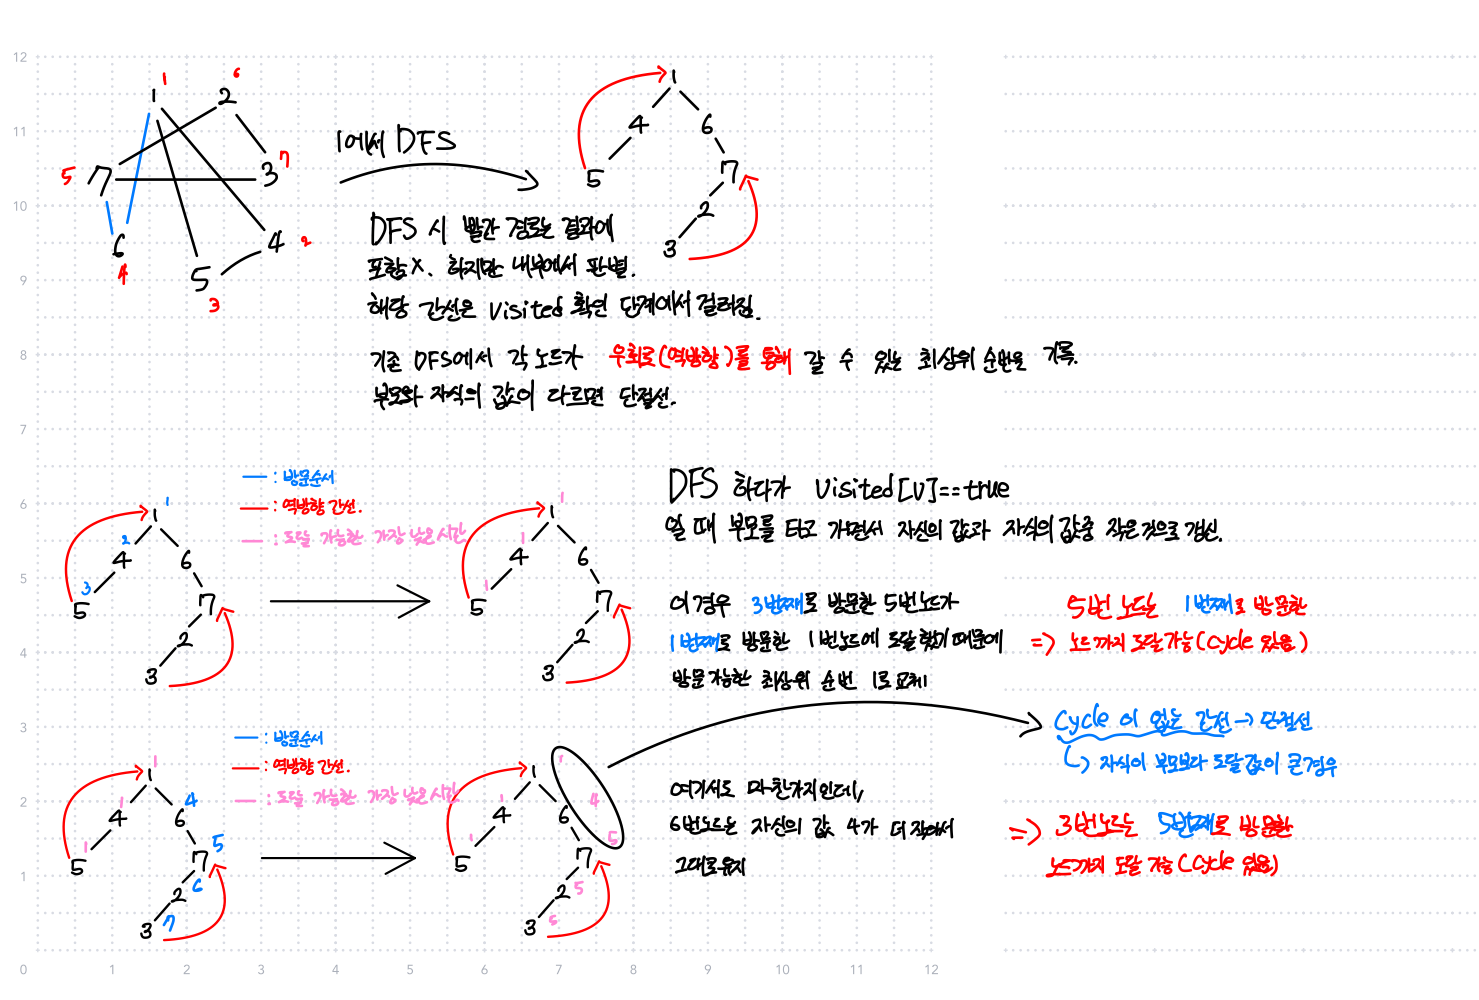 12
11
10
9
8
7
6
5
4
3
2
1
0 1 2 3 4 5 6 7 8 9 10 11 12
1 1 2 6
5 7 3 7
6 4 2
4 5
3
1에서 DFS
1
4 6
5 7
2
3
DFS 시 빨간 경로는 결과에
포함 X. 하지만 내부에서 판별.
해당 간선은 visited 확인 단계에서 걸러짐.
기존 DFS에서 각 노드가 우회로(역방향)를 통해 갈 수 있는 최상위 순번을 기록.
부모와 자식의 값이 다르면 단절선.
: 방문순서
: 역방향 간선.
: 도달 가능한 가장 낮은 시간
1 1
2 4 6
3 5 7
2
3
1 1
1 4 6
1 5 7
2
3
DFS 하다가 visited[v]==true
일 때 부모를 타고 가면서 자신의 값과 자식의 값중 작은것으로 갱신.
이 경우 3번째로 방문한 5번노드가
1번째로 방문한 1번노드에 도달했기 때문에
방문가능한 최상위 순번 1로 교체
5번 노드는 1번째로 방문한
=> 노드까지 도달가능(Cycle 있음)
Cycle 이 없는 간선 → 단절선
↳ 자식이 부모보다 도달값이 큰 경우
: 방문순서
: 역방향 간선.
: 도달 가능한 가장 낮은 시간
1 1
1 4 6 4
1 5 7 5
2 6
3 7
1 1
1 4 6 4
1 5 7 5
2 5
3 5
여기서도 마찬가지인데,
6번노드는 자신의 값 4가 더 작아서
그대로유지
=> 3번노드는 5번째로 방문한
노드까지 도달 가능(Cycle 있음)